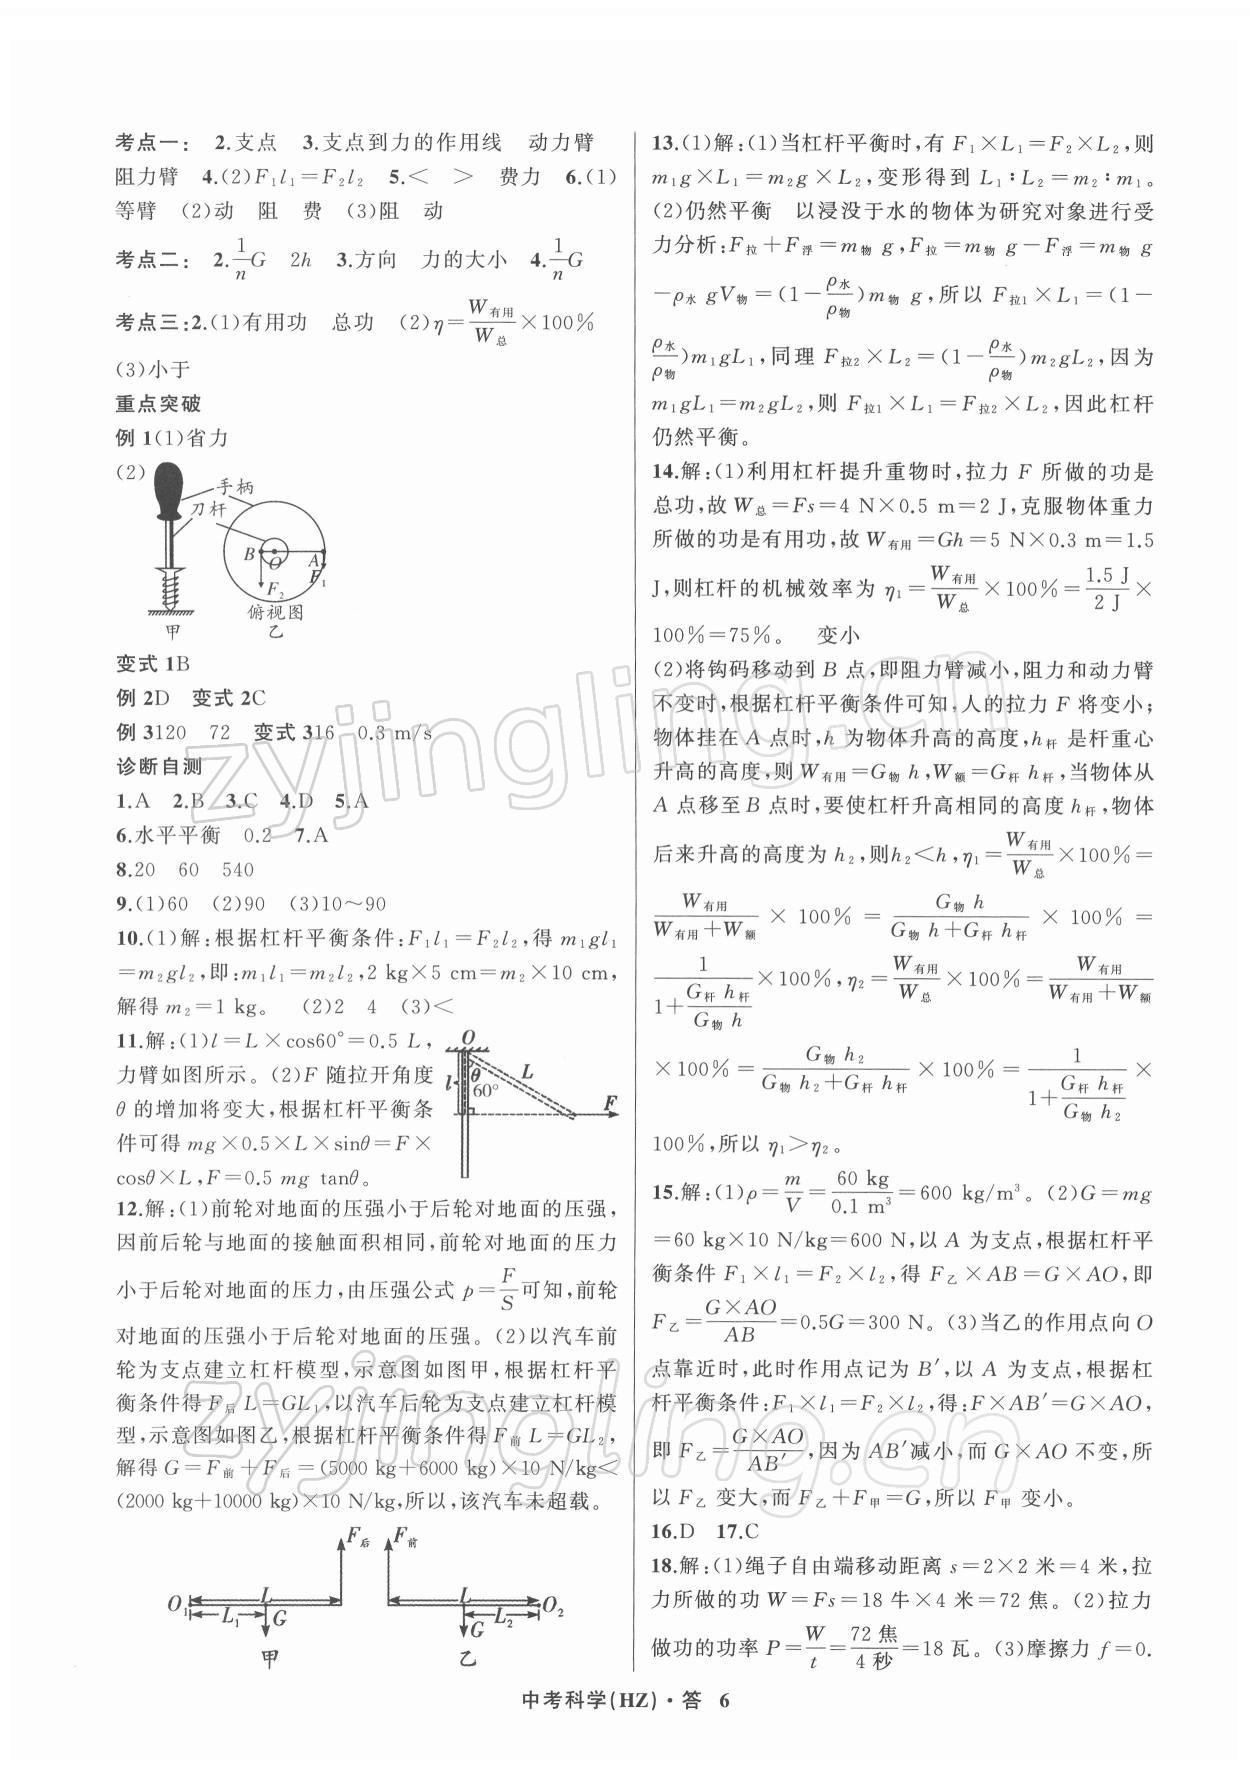 考点一： 2.支点 3.支点到力的作用线 动力臂
阻力臂 4.(2)F₁l₁＝F₂l₂ 5.＜ ＞ 费力 6.(1)
等臂 (2)动 阻 费 (3)阻 动
考点二： 2.1/n G 2h 3.方向 力的大小 4.1/n G
考点三：2.(1)有用功 总功 (2)η＝W有用/W总×100％
(3)小于
重点突破
例 1(1)省力
(2)
手柄
刀杆
B O A
F₂ F₁
俯视图
甲 乙
变式 1B
例 2D 变式 2C
例 3120 72 变式 316 0.3 m/s
诊断自测
1.A 2.B 3.C 4.D 5.A
6.水平平衡 0.2 7.A
8.20 60 540
9.(1)60 (2)90 (3)10～90
10.(1)解：根据杠杆平衡条件：F₁l₁＝F₂l₂，得 m₁gl₁
＝m₂gl₂，即：m₁l₁＝m₂l₂，2 kg×5 cm＝m₂×10 cm，
解得 m₂＝1 kg。 (2)2 4 (3)＜
11.解：(1)l＝L×cos60°＝0.5 L，
力臂如图所示。(2)F 随拉开角度
θ 的增加将变大，根据杠杆平衡条
件可得 mg×0.5×L×sinθ＝F×
cosθ×L，F＝0.5 mg tanθ。
O
θ
60°
l
L
F
12.解：(1)前轮对地面的压强小于后轮对地面的压强，
因前后轮与地面的接触面积相同，前轮对地面的压力
小于后轮对地面的压力，由压强公式 p＝F/S可知，前轮
对地面的压强小于后轮对地面的压强。(2)以汽车前
轮为支点建立杠杆模型，示意图如图甲，根据杠杆平
衡条件得 F后 L＝GL₁，以汽车后轮为支点建立杠杆模
型，示意图如图乙，根据杠杆平衡条件得 F前 L＝GL₂，
解得 G＝F前＋F后＝(5000 kg＋6000 kg)×10 N/kg＜
(2000 kg＋10000 kg)×10 N/kg，所以，该汽车未超载。
F后 F前
O₁ L L O₂
L₁ G G L₂
甲 乙
13.(1)解：(1)当杠杆平衡时，有 F₁×L₁＝F₂×L₂，则
m₁g×L₁＝m₂g×L₂，变形得到 L₁∶L₂＝m₂∶m₁。
(2)仍然平衡 以浸没于水的物体为研究对象进行受
力分析：F拉＋F浮＝m物 g，F拉＝m物 g－F浮＝m物 g
－ρ水 gV物＝(1－ρ水/ρ物)m物 g，所以 F拉1×L₁＝(1－
ρ水/ρ物)m₁gL₁，同理 F拉2×L₂＝(1－ρ水/ρ物)m₂gL₂，因为
m₁gL₁＝m₂gL₂，则 F拉1×L₁＝F拉2×L₂，因此杠杆
仍然平衡。
14.解：(1)利用杠杆提升重物时，拉力 F 所做的功是
总功，故 W总＝Fs＝4 N×0.5 m＝2 J，克服物体重力
所做的功是有用功，故 W有用＝Gh＝5 N×0.3 m＝1.5
J，则杠杆的机械效率为 η₁＝W有用/W总×100％＝1.5 J/2 J×
100％＝75％。 变小
(2)将钩码移动到 B 点，即阻力臂减小，阻力和动力臂
不变时，根据杠杆平衡条件可知，人的拉力 F 将变小；
物体挂在 A 点时，h 为物体升高的高度，h杆 是杆重心
升高的高度，则 W有用＝G物 h，W额＝G杆 h杆，当物体从
A 点移至 B 点时，要使杠杆升高相同的高度 h杆，物体
后来升高的高度为 h₂，则h₂＜h，η₁＝W有用/W总×100％＝
W有用/(W有用＋W额)×100％＝G物 h/(G物 h＋G杆 h杆)×100％＝
1/(1＋G杆 h杆/G物 h)×100％，η₂＝W有用/W总×100％＝W有用/(W有用＋W额)
×100％＝G物 h₂/(G物 h₂＋G杆 h杆)×100％＝1/(1＋G杆 h杆/G物 h₂)×
100％，所以 η₁＞η₂。
15.解：(1)ρ＝m/V＝60 kg/0.1 m³＝600 kg/m³。(2)G＝mg
＝60 kg×10 N/kg＝600 N，以 A 为支点，根据杠杆平
衡条件 F₁×l₁＝F₂×l₂，得 F乙×AB＝G×AO，即
F乙＝G×AO/AB＝0.5G＝300 N。(3)当乙的作用点向 O
点靠近时，此时作用点记为 B′，以 A 为支点，根据杠
杆平衡条件：F₁×l₁＝F₂×l₂，得：F×AB′＝G×AO，
即 F乙＝G×AO/AB′，因为 AB′减小，而 G×AO 不变，所
以 F乙 变大，而 F乙＋F甲＝G，所以 F甲 变小。
16.D 17.C
18.解：(1)绳子自由端移动距离 s＝2×2 米＝4 米，拉
力所做的功 W＝Fs＝18 牛×4 米＝72 焦。(2)拉力
做功的功率 P＝W/t＝72 焦/4 秒＝18 瓦。(3)摩擦力 f＝0.
中考科学(HZ)·答 6
zyjingling.cn
zyjingling.cn